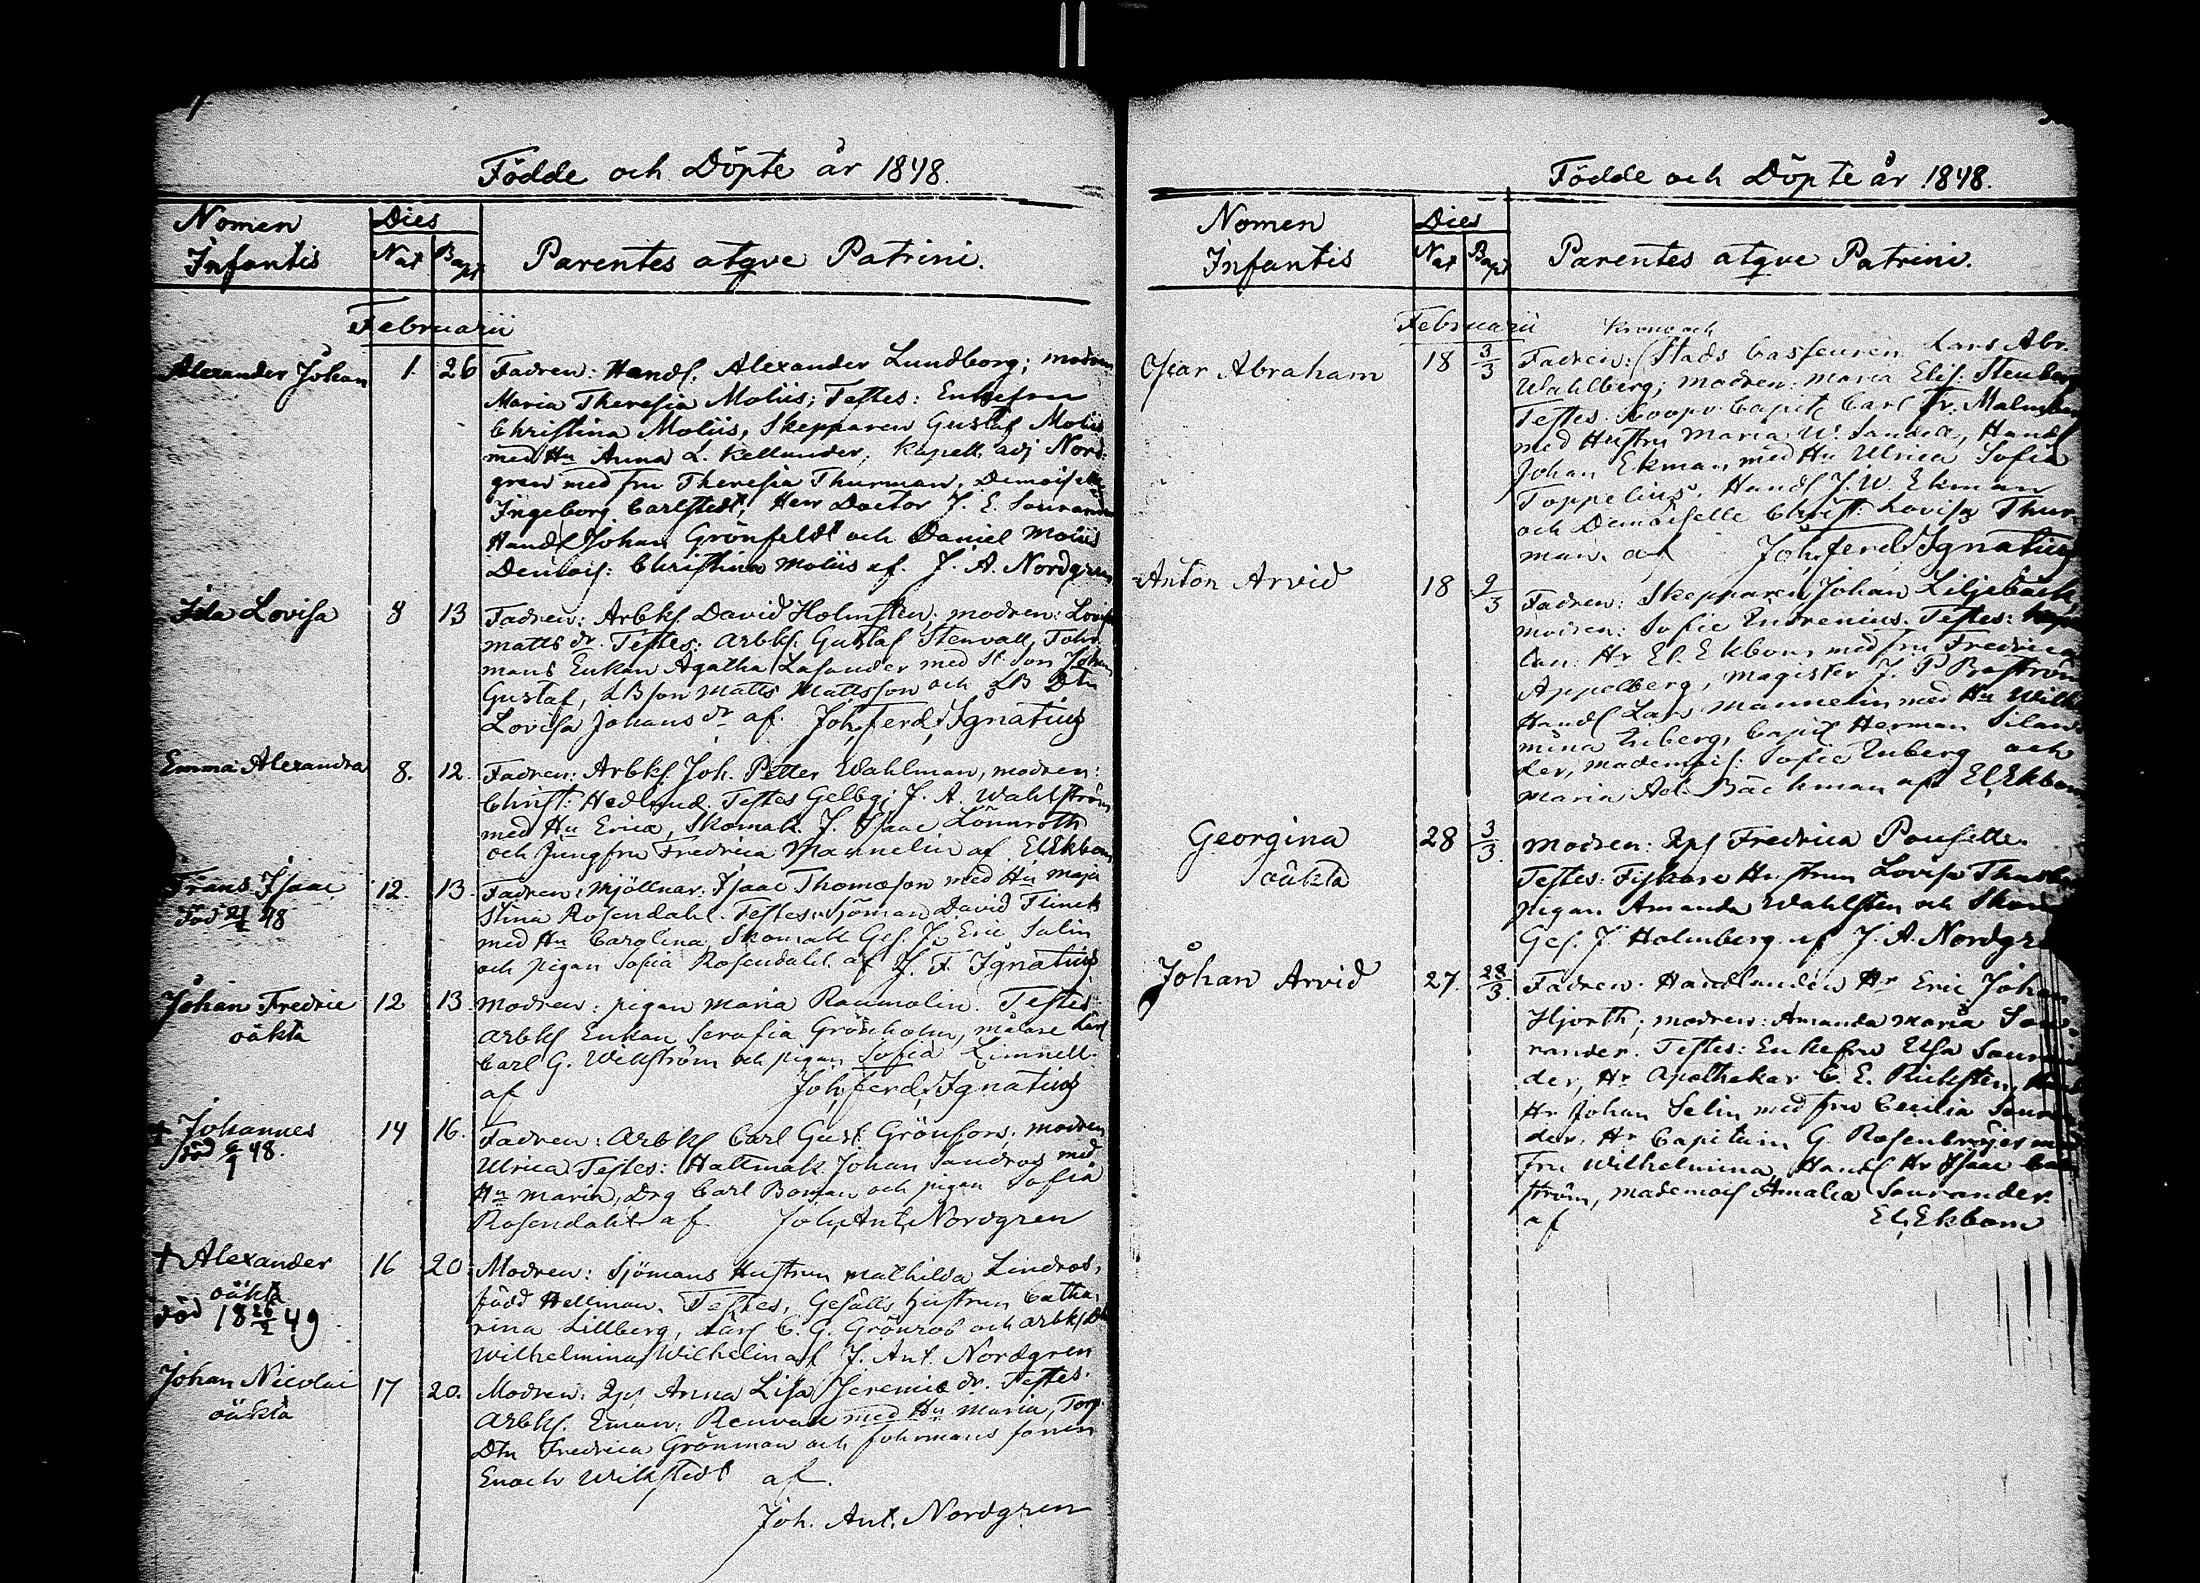 Födde och Döpte år 1848.
Nomen Infantis
Dies
Nat Bapt
Parentes atqve Patrini.
Februarii
Alexander Johan 1. 26 Fadren: Handl. Alexander Lundborg; modren
Maria Theresia Moliis; Testes: Enkefru
Christina Moliis, Skepparen Gustaf Moliis
med Hu Anna L. Kellander, Kapell. adj Nord-
gren med fru Theresia Thurman, Demoiselle
Ingeborg Carlstedt, Herr Doctor J. E. Sourander
Handl Johan Grönfeldt och Daniel Moliis
Demois: Christina Moliis af J. A. Nordgren
Ida Lovisa 8 13 Fadren: Arbks David Holmsten; modren: Lovisa
Matts dr. Testes: Arbks. Gustaf Stenvall, Fohr
mans Enkan Agatha Lasander med St. Son Johan
Gustaf, LBson Matts Mattsson och LB Dtn
Lovisa Johans dr af. Joh, ferd, Ignatius
Emma Alexandra 8. 12. Fadren: Arbks Joh. Petter Wahlman, modren:
Christ: Hedlund. Testes Gelbg: J. A. Wahlström
med Hu Erica, Skomak. J. Isaac Lönnroth
och Jungfru Fredrica Mannelin af El Ekbom
Frans Isaac 12. 13. Fadren: Mjöllnar. Isaac Thomæson med Hu Maja
Död 48 Stina Rosendahl. Testes: Sjöman David Flinck
med Hu Carolina, Skomak Ges. J. Eric Salin
och pigan Sofia Rosendahl. af J. F. Ignatius
Johan Fredric 12 13. Modren: pigan Maria Raumolin. Testes:
oäkta Arbks Enkan Serafia Grönholm, målare Lärl
Carl G. Wikström och pigan Sofia Limnell.
af Joh, ferd, Ignatius
+ Johannes 14 16. Fadren: Arbks Carl Gust Grönfors, modren
död 48. Ulrica Testes: Hattmak Johan Sandros med
Hu Maria, Drg Carl Boman och pigan Sofia
Rosendahl af Joh, Ant, Nordgren
+ Alexander 16 20. Modren: Sjömans Hustrun Mathilda Lindros,
oäkta född Hellman. Testes, Gesälls hustrun Catha-
död 18 26/2 49 rina Lillberg, Lärl C. G. Grönros och Arbks Dtr
Wilhelmina Wilhelin af J. Ant. Nordgren
Johan Nicolai 17 20. Modren: Anna Lisa Jeremiæ dr. Testes.
oäkta Arbks. Eman: Renvall med Hu Maria, Torp.
Dtn Fredrica Grönman och fohrmans sonen
Enoch Wikstedt af
Joh. Ant. Nordgren
Födde och Döpte år 1848.
Nomen Infantis
Dies
Nat Bapt
Parentes atqve Patrini.
Februarii
Krono och
Oscar Abraham 18 3/3 Fadren: (Stads Casseuren Lars Abr.
Wahlberg; modren: Maria Elis: Stenberg
Testes: Koopv. Capit. Carl Fr. Malmberg
med Hustru Maria W. Sandell, Handl
Johan Ekman med Hu Ulrica Sofia
Toppelius, Handl J. W. Ekman
och Demoiselle Christ: Lovisa Thur-
man. af Joh, ferd, Ignatius
Anton Arvid 18 9/3 Fadren: Skepparen Johan Liljebäck,
modren: Sofie Testes: Kapel
lan: Hr El. Ekbom med fru Fredrica
Appelberg, Magister J. P. Boström
Handl Lars Mannelin med Hu Wilhel
mina Enberg, Capit Herman Silan
der, mademois: Sofie Enberg och
Maria Ad. Bäckman af El, Ekbom
Georgina 28 3/3. Modren: Fredrica Pousette.
oäkta Testes: Fiskare Hustrun Lovisa
pigan Amanda Wahlsten och Skom
Ges. J Holmberg. af J. A. Nordgren
Johan Arvid 27. 28/3. Fadren. Handlanden Hr Eric Johan
Hjorth; modren: Amanda Maria Sou-
rander. Testes: Enkefru Ulla Souran
der, Hr Apothekar C. E. Rickstén,
Hr Johan Selin med fru Cecilia Souran
der, Hr Capitain G. Rosenbröijer med
Fru Wilhelmina, Handl Hr Isaac
ström, mademois Amalia Sourander.
af El, Ekbom